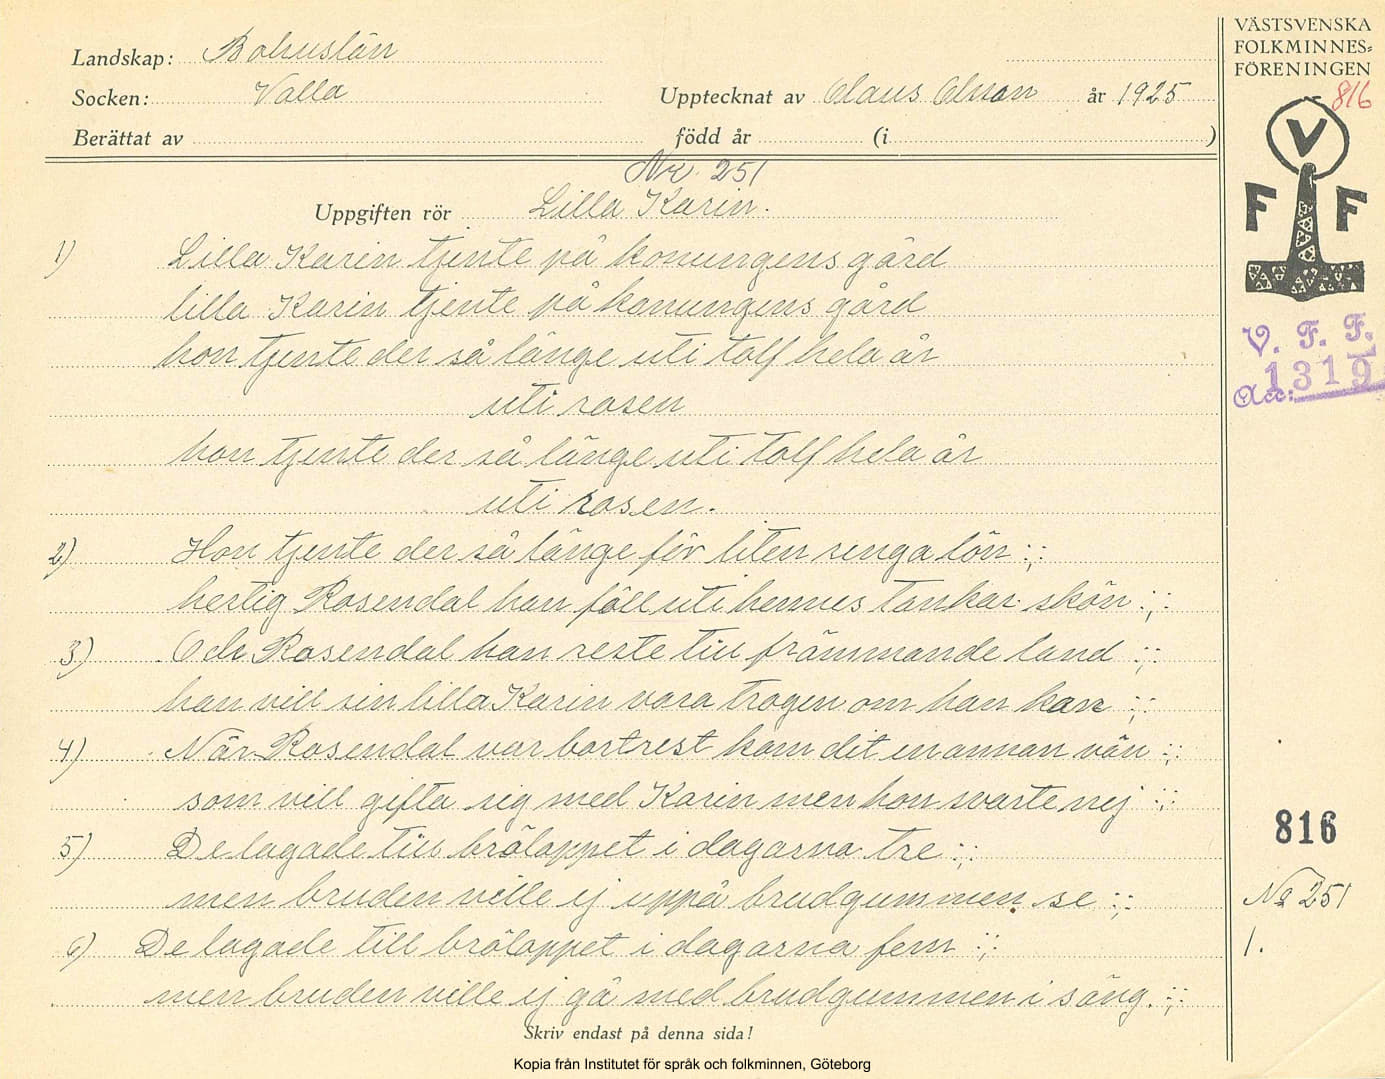 Landskap: Bohuslän
Socken: Valla
Upptecknat av Olaus Olsson år 1925
Berättat av född år (i )
VÄSTSVENSKA
FOLKMINNES-
FÖRENINGEN
816
V
F F
V. F. F.
1319
Acc:
Nr. 251
Uppgiften rör Lilla Karin.
1) Lilla Karin tjente på konungens gård
lilla Karin tjente på konungens gård
hon tjente der så länge uti tolf hela år
uti rosen
hon tjente der så länge uti tolf hela år
uti rosen.
2) Hon tjente der så länge för liten ringa lön :;:
hertig Rosendal han föll uti hennes tankar skön :;:
3) Och Rosendal han reste till främmande land :;:
han vill sin lilla Karin vara trogen om han kan :;:
4) När Rosendal var bortrest kom dit en annan vän :;:
som vill gifta sig med Karin men hon svarte nej :;:
5) De lagade till bröloppet i dagarna tre :;:
men bruden ville ej uppå brudgummen se :;:
6) De lagade till bröloppet i dagarna fem :;:
men bruden ville ej gå med brudgummen i säng. :;:
816
No 251
1.
Skriv endast på denna sida!
Kopia från Institutet för språk och folkminnen, Göteborg